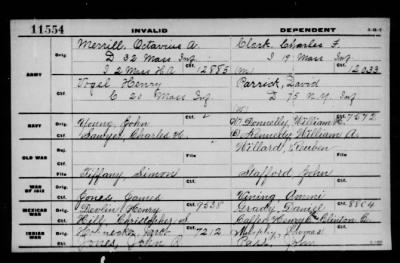 11554 INVALID DEPENDENT
ARMY
Orig. Merrill, Octavius A. Clark, Charles F.
D 32 Mass Inf I 19 Mass Inf
Ctf. I 2 Mass H A 12885 (M) 12033
Orig. Vogel Henry David
Ctf. C 20 Mass Inf I 75 N.Y. Inf
NAVY
Orig. Young, John Ctf. Donnelly, William 7672
Ctf. Sawyer, Charles H. Kennedy William A.
OLD WAR
Orig. Willard, Reuben
File File
Ctf. Tiffany Simon Stafford John
WAR OF 1812
Orig. Ctf. Ctf.
Ctf. Jones, James Vining,
MEXICAN WAR
Orig. Devlin Henry 9538 Grady Daniel 8804
Ctf. Hill Christopher Henry Clinton
INDIAN WAR
Orig. 7212 Murphy, Thomas
Ctf. Jones, John